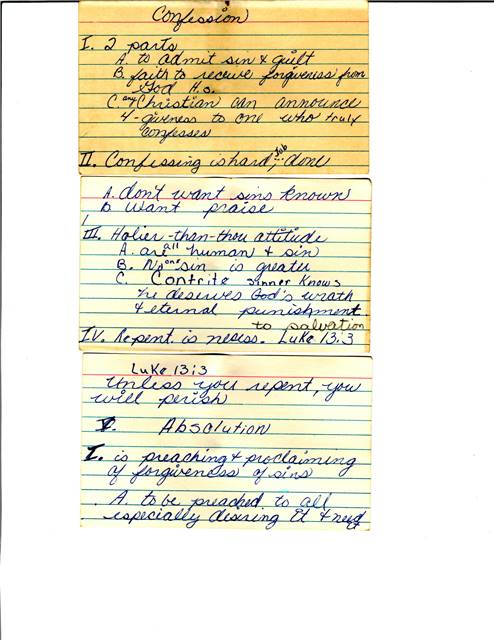 Confession
I. 2 parts
A. to admit sin & guilt
B. faith to receive forgiveness from
God
C. any Christian can announce
4-giveness to one who truly
confesses
II. Confessing is hard, job done
A. don't want sins known
B want praise
III. Holier-than-thou attitude
A. are all human & sin
B. No one sin is greater
C. Contrite sinner knows
he deserves God's wrath
& eternal punishment
to salvation
IV. Repent is necess. Luke 13:3
Luke 13:3
Unless you repent, you
will perish
V. Absolution
I. is preaching & proclaiming
of forgiveness of sins
A. to be preached to all
especially desiring it & need